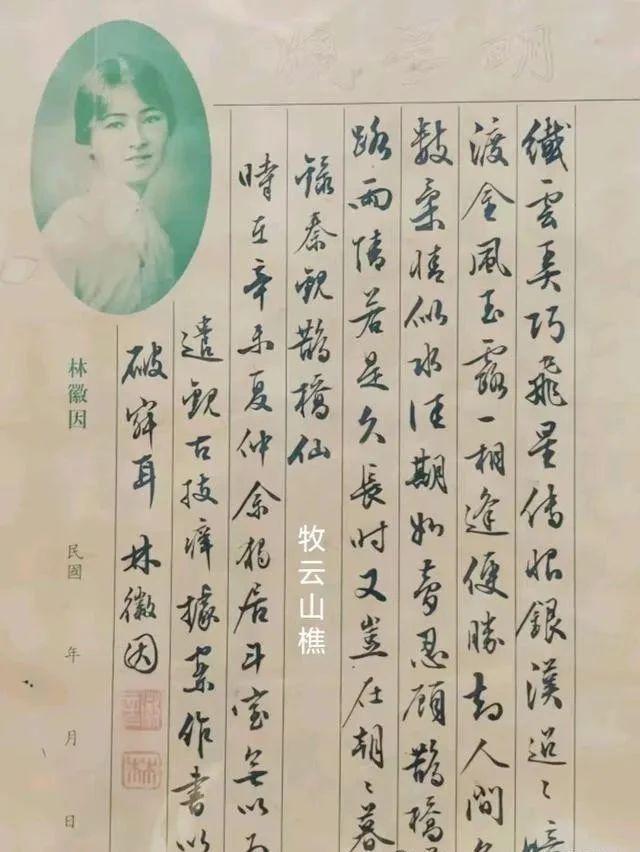 纖雲弄巧飛星傳恨銀漢迢々暗
渡金風玉露一相逢便勝却人間
數柔情似水佳期如夢忍顧鵲橋
路兩情若是久長時又豈在朝々暮
錄秦觀鵲橋仙
時在辛未夏仲余獨居斗室無以
遣觀古技痒據案作書以
破寂耳 林徽因
林徽因
民國 年 月 日
牧云山樵